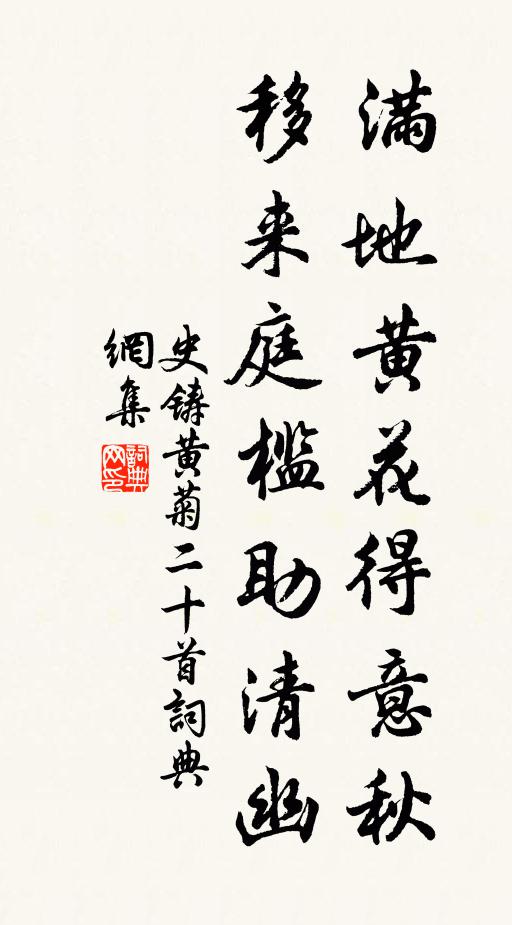 满地黄花得意秋
移来庭槛助清幽
史鑄黄菊二十首詞典
網集
詞典
网印